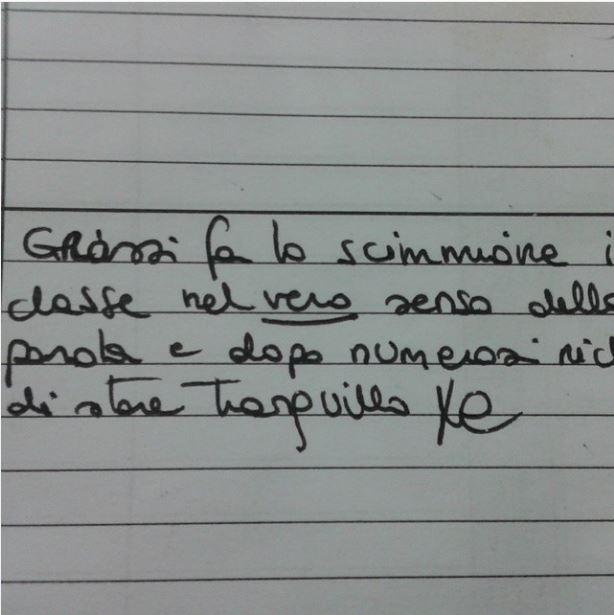 Grassi fa lo scimmione i
classe nel vero senso della
parola e dopo numerosi ric
di stare tranquillo